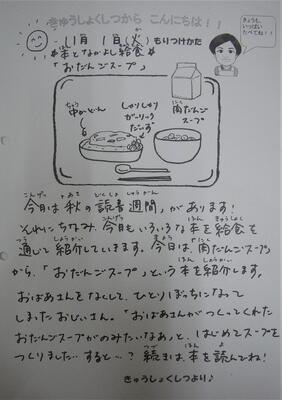 きゅうしょくしつから こんにちは！！
きょうも、
いっぱい
たべてね！！
11月 1日(火) もりつけかた
か
*本となかよし給食*
「おだんごスープ」
ちゅう
中かどん
しゃりしゃり
ガーリック
だいず
にく
肉だんご
スープ
こんげつ あき どくしょ しゅうかん
今月は秋の読書週間、があります！
それにちなみ、今月もいろいろな本を給食を
通じて紹介していきます。今日は、「肉だんごスープ」
から、「おだんごスープ」という本を紹介します。
おばあさんをなくして、ひとりぼっちになって
しまったおじいさん。「おばあさんがつくってくれた
おだんごスープがのみたいなあ」と、はじめてスープを
つくりました…すると…？続きは、本を読んでね！
きゅうしょくしつより♪